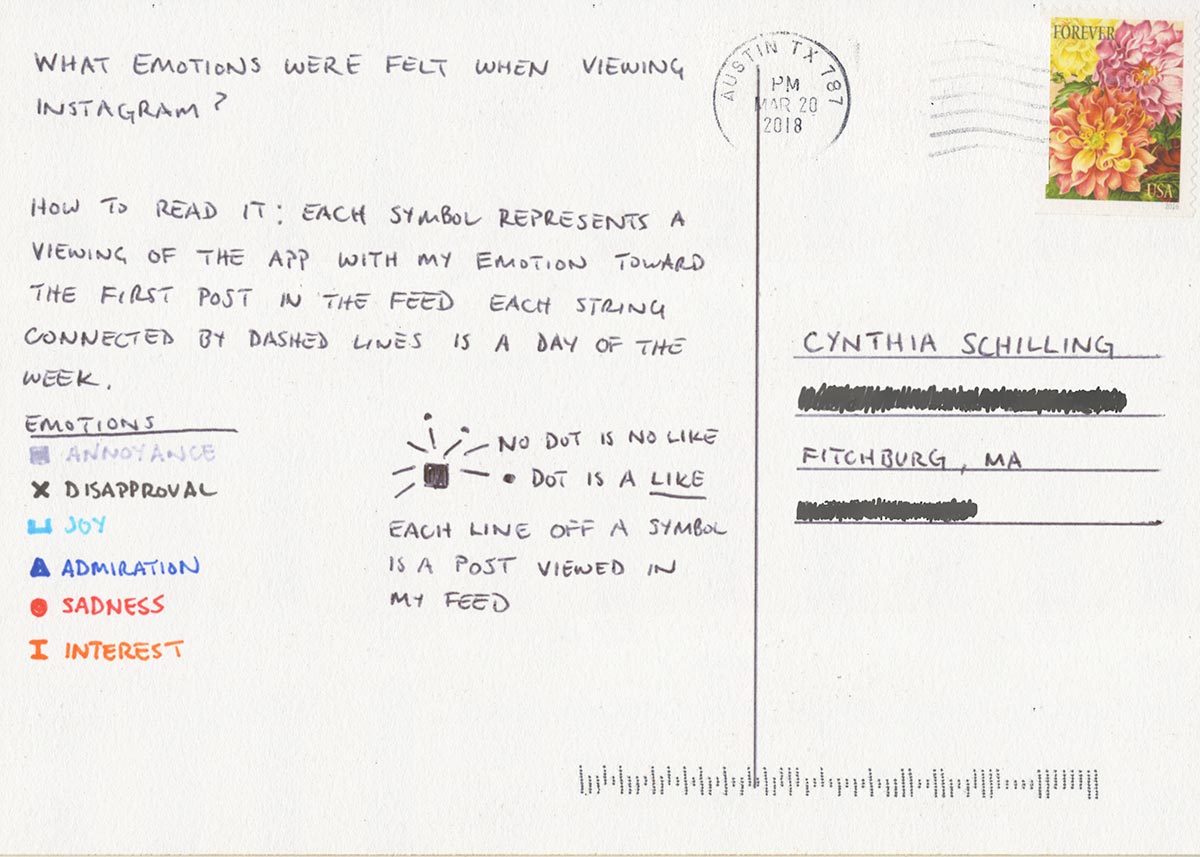 WHAT EMOTIONS WERE FELT WHEN VIEWING
INSTAGRAM?
HOW TO READ IT: EACH SYMBOL REPRESENTS A
VIEWING OF THE APP WITH MY EMOTION TOWARD
THE FIRST POST IN THE FEED EACH STRING
CONNECTED BY DASHED LINES IS A DAY OF THE
WEEK.
EMOTIONS
ANNOYANCE
DISAPPROVAL
JOY
ADMIRATION
SADNESS
INTEREST
NO DOT IS NO LIKE
DOT IS A LIKE
EACH LINE OFF A SYMBOL
IS A POST VIEWED IN
MY FEED
AUSTIN TX 787
PM
MAR 20
2018
FOREVER
USA
2016
CYNTHIA SCHILLING
FITCHBURG, MA